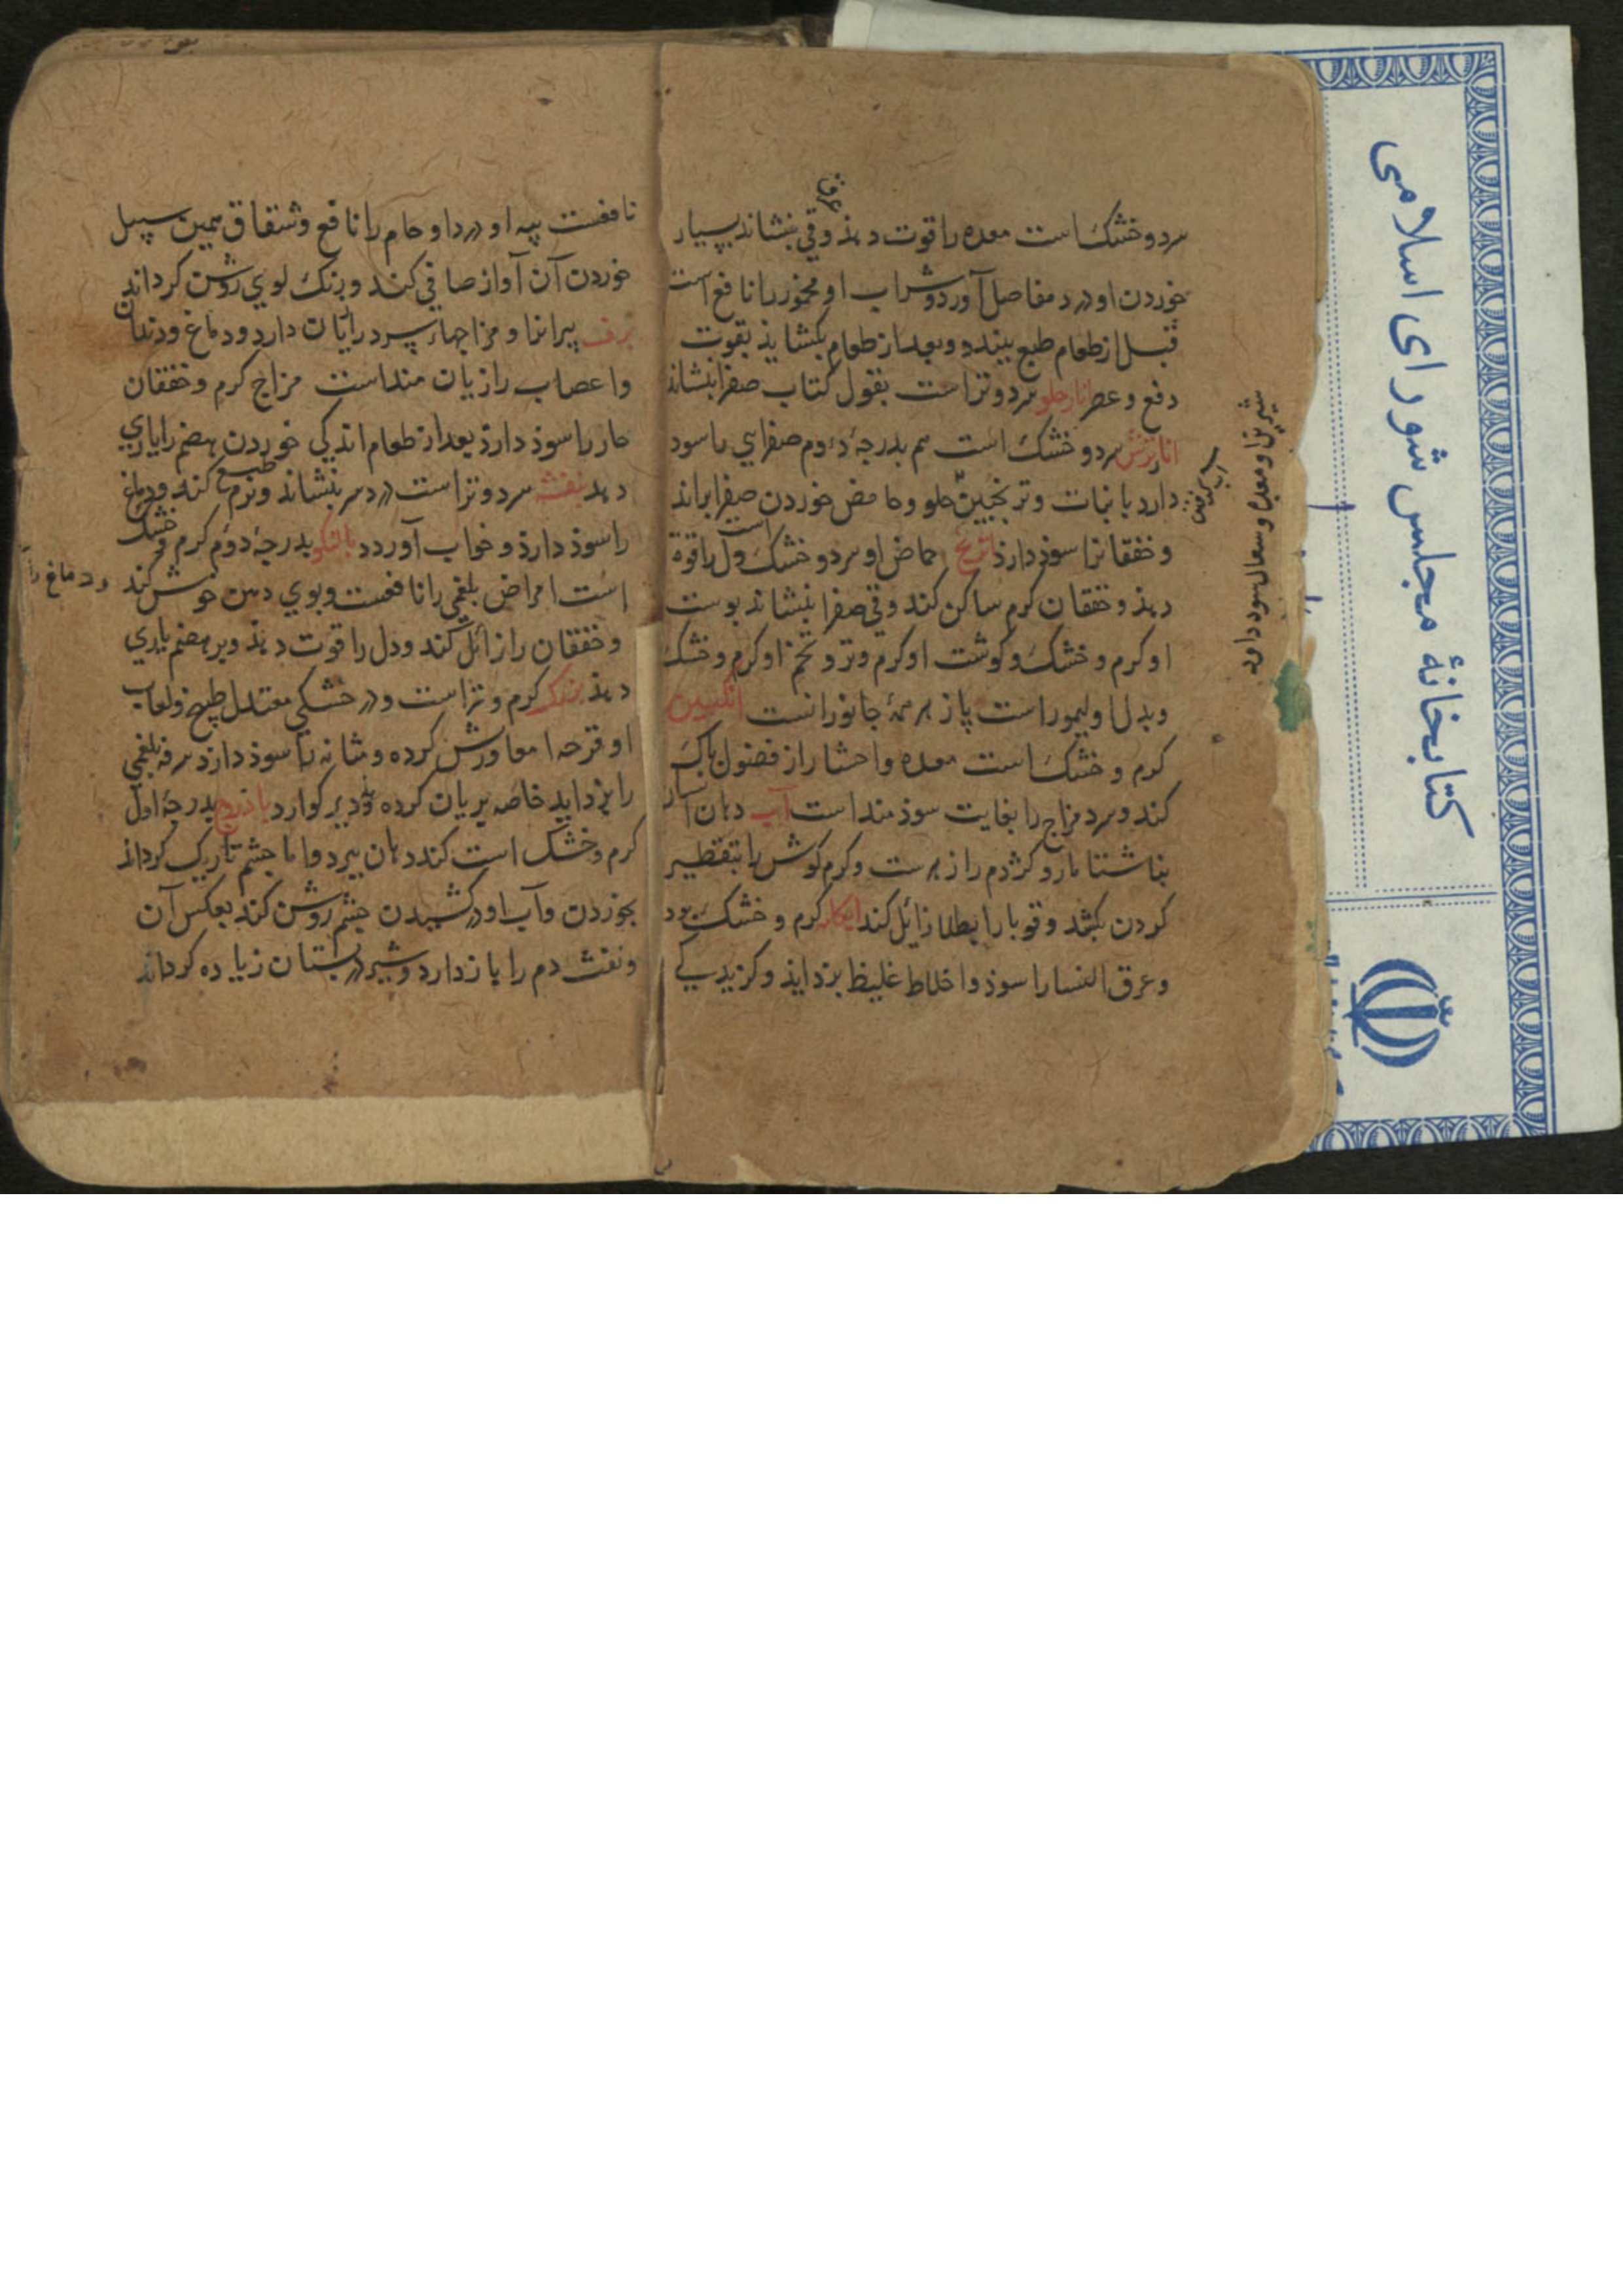 سرد و خشک است معده را قوت دهذ و قی بنشاند بسیار
عرق
خوردن او درد مفاصل آورد و شراب او مخمور را نافع است
قبل از طعام طبع ببندد و بعد از طعام بکشاید بقوت
دفع و عصر انار حلو سرد و تر است بقول کتاب صفرا بنشاند
انار ترش سرد و خشک است هم بدرجهٔ دوم صفرایی را سود
دارد با نبات و ترنجبین حلو و حامض خوردن صفرا براند
و خفقانرا سوذ دارذ اترج حماض او سرد و خشک است دل را قوة
دهذ و خفقان کرم ساکن کند و قی صفرا بنشاند پوست
او کرم و خشک و کوشت او کرم و تر و تخم او کرم و خشک
و بدل او لیمو است پازهر همهٔ جانورانست انکبین
کرم و خشک است معده و احشا را از فضول پاک
کند و سرد مزاج را بغایت سوذمند است آب دهان آن
بناشتا مار و کژدم را زهرست و کرم کوش را بتقطیر
کردن بکشد و قوبا را بطلا زائل کند آبکامه کرم و خشک بود
و عرق النسا را سوذ و اخلاط غلیظ بزداید و کزیدکی
شیر پز او معده و سعال سود دارد
نافعست پیه او درد او حام را نافع و شقاق همین سبیل
خوردن آن آواز صافی کند و رنک لوی روشن کرداند
برف پیرانرا و مزاجهاء سرد را زیان دارد و دماغ و دندان
و اعصاب را زیان منداست مزاج کرم و خفقان
حار را سوذ دارذ بعد از طعام اندکی خوردن هضم را یاری
دهد بنفشه سرد و تر است درد سر بنشاند و نرم طبع کند و دماغ
را سوذ دارذ و خواب آورد بالنکو بدرجهٔ دوم کرم و خشک
است امراض بلغمی را نافعست و بوی دهن خوش کند
و دماغ را
و خفقان را زائل کند و دل را قوت دهذ و بر هضم یاری
دهذ بزرک کرم و تر است و در خشکی معتدل طبیخ و لعاب
او قرحه امعا ورش کرده و مثانه را سوذ دارذ سرفه بلغمی
را بزداید خاصه بریان کرده و دیر کوارد باذروج بدرجهٔ اول
کرم و خشک است کند دهان ببرد و اما چشم تاریک کرداند
بخوردن و آب او در کشیدن چشم روشن کند بعکس آن
و نفث دم را باز دارد و شیر در پستان زیاده کرداند
کتابخانهٔ مجلس شورای اسلامی